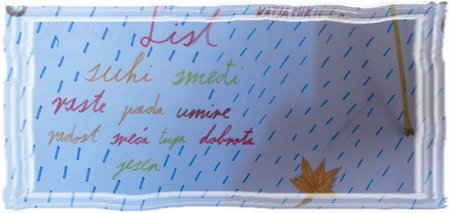 List
suhi smeđi
raste pada umire
radost sreća tuga dobrota
jesen